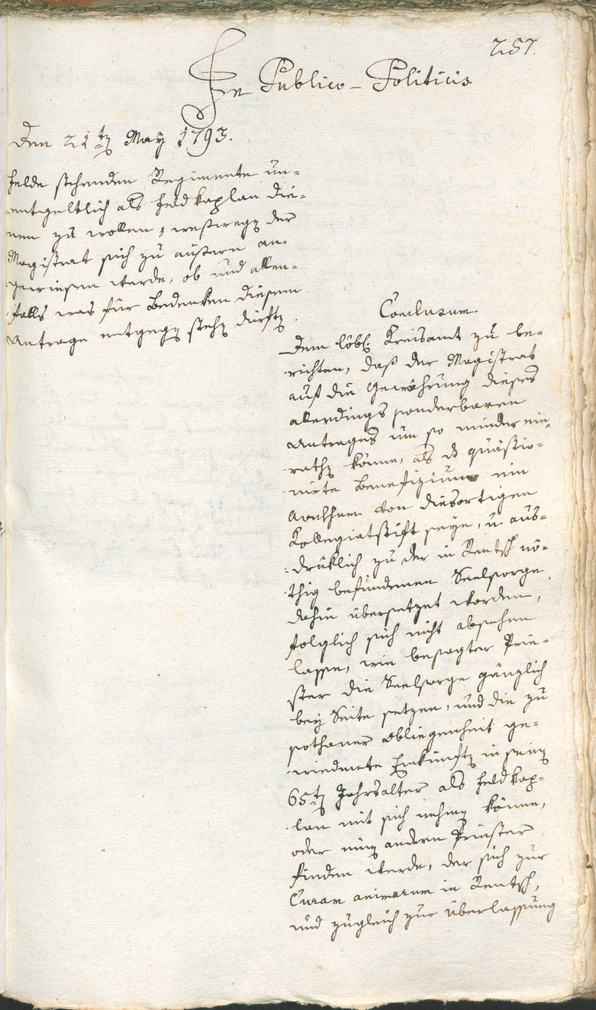 257.
In Publico-Politicis
Den 21ten May 1793.
Felde stehenden Regimente un-
entgeltlich als Feldkaplan die-
nen zu wollen; weßwegen der
Magistrat sich zu äußern an-
gewiesen werde, ob und allen-
falls was für Bedenken diesem
Antrage entgegen stehen dürften.
Conclusum.
Dem löbl. Kreisamt zu be-
richten, daß der Magistrat
auf die Gewährung dieses
allerdings sonderbaren
Antrages um so minder ein-
rathen könne, als das quästio-
nirte Benefizium ein
von diesortigen
Kollegiatstift seye, u. aus-
drüklich zu der in Rentsch nö-
thig befundenen Seelsorge
dahin übersetzet worden,
folglich sich nicht absehen
lasse, wie besagter Prie-
ster die Seelsorge gänzlich
bey Seite setzen, und die zu
sothaner Obliegenheit ge-
wiedmete Einkünften in seinem
65ten Jahrsalter als Feldkap-
lan mit sich nehmen könne,
oder einen andern Priester
finden werde, der sich zur
Curam animarum in Rentsch,
und zugleich zur Überlassung